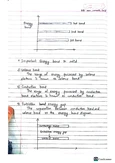 Energy
band
3rd band
2nd band
1st band
* Important Energy band in solid
1) Valence band
The range of energy possessed by valence
electrons is known as valence band.
2) Conduction band
The range of energy possessed by conduction
band electrons is known as conduction band.
3) Forbidden energy gap
The separation between conduction band and
valence band on the energy band diagram.
Conduction band
Forbidden energy gap
Valence band